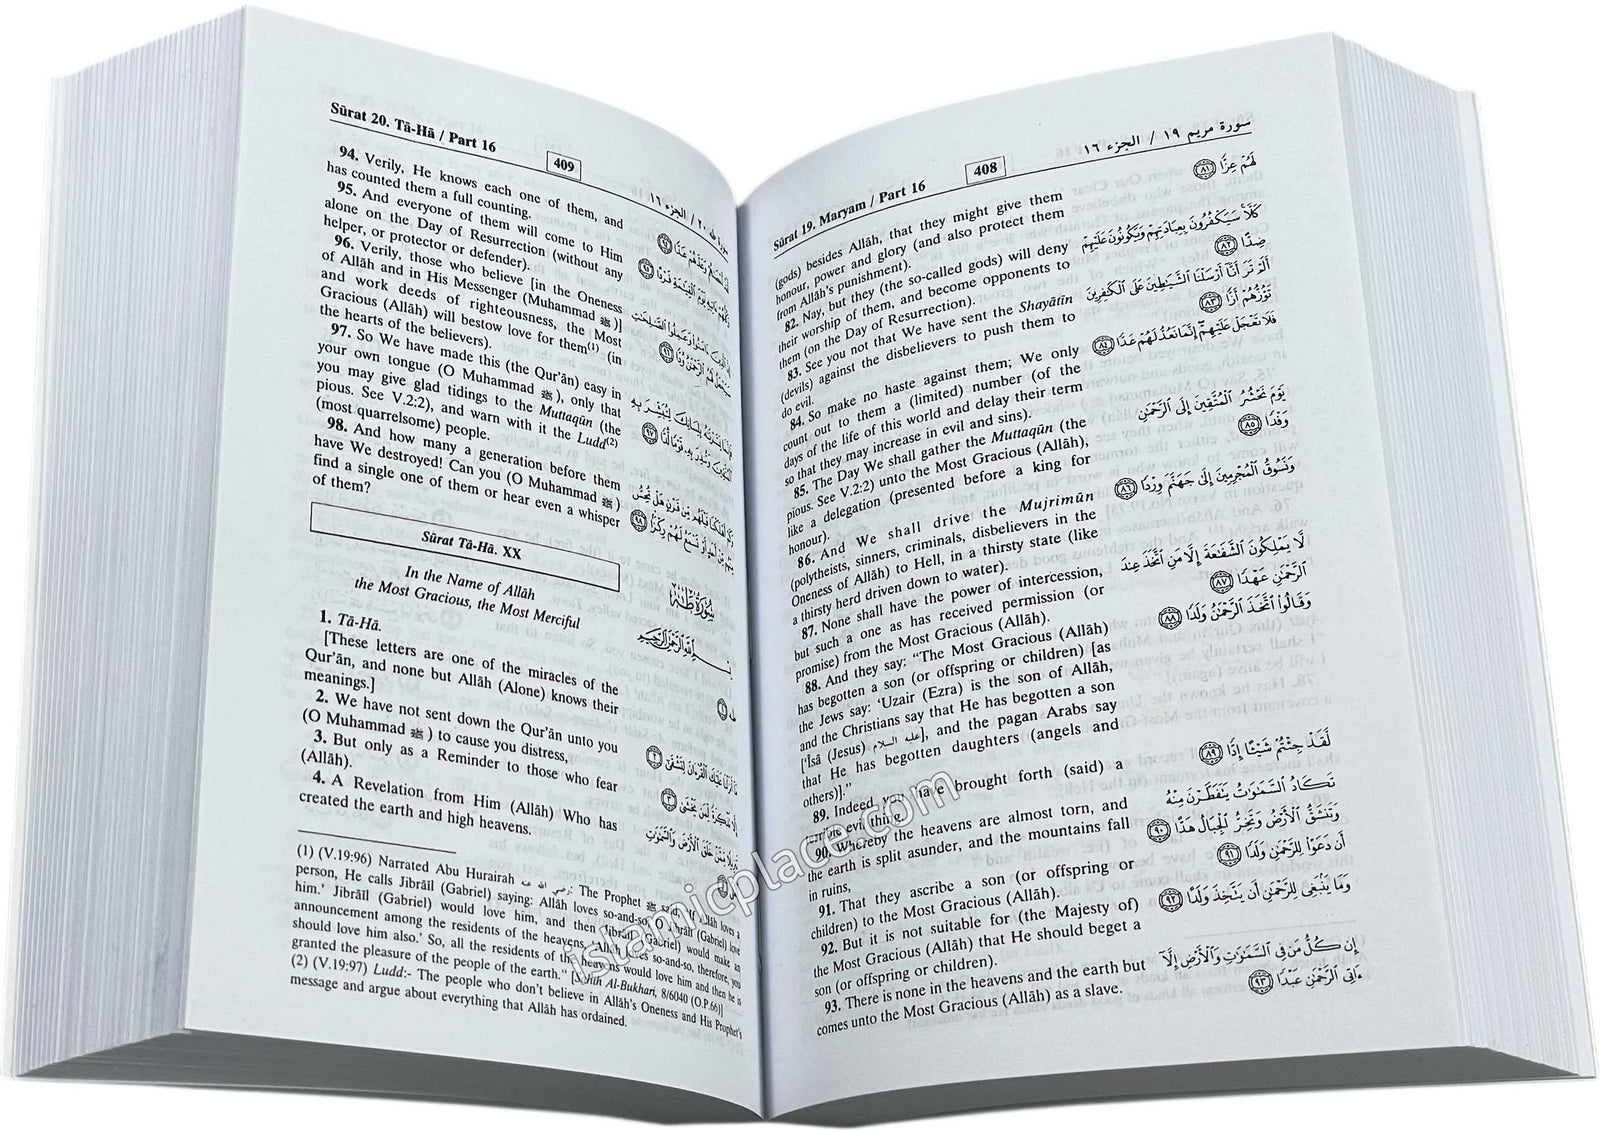 سورة مريم ١٩ / الجزء ١٦
408
Sūrat 19. Maryam / Part 16
(gods) besides Allāh, that they might give them
honour, power and glory (and also protect them
from Allāh's punishment).
82. Nay, but they (the so-called gods) will deny
their worship of them, and become opponents to
them (on the Day of Resurrection).
83. See you not that We have sent the Shayātīn
(devils) against the disbelievers to push them to
do evil.
84. So make no haste against them; We only
count out to them a (limited) number (of the
days of the life of this world and delay their term
so that they may increase in evil and sins).
85. The Day We shall gather the Muttaqūn (the
pious. See V.2:2) unto the Most Gracious (Allāh),
like a delegation (presented before a king for
honour).
86. And We shall drive the Mujrimūn
(polytheists, sinners, criminals, disbelievers in the
Oneness of Allāh) to Hell, in a thirsty state (like
a thirsty herd driven down to water).
87. None shall have the power of intercession,
but such a one as has received permission (or
promise) from the Most Gracious (Allāh).
88. And they say: "The Most Gracious (Allāh)
has begotten a son (or offspring or children) [as
the Jews say: 'Uzair (Ezra) is the son of Allāh,
and the Christians say that He has begotten a son
['Īsā (Jesus) عليه السلام], and the pagan Arabs say
that He has begotten daughters (angels and
others)]."
89. Indeed you have brought forth (said) a
terrible evil thing.
90. Whereby the heavens are almost torn, and
the earth is split asunder, and the mountains fall
in ruins,
91. That they ascribe a son (or offspring or
children) to the Most Gracious (Allāh).
92. But it is not suitable for (the Majesty of)
the Most Gracious (Allāh) that He should beget a
son (or offspring or children).
93. There is none in the heavens and the earth but
comes unto the Most Gracious (Allāh) as a slave.
لَهُمْ عِزًّا ٨١
كَلَّا سَيَكْفُرُونَ بِعِبَادَتِهِمْ وَيَكُونُونَ عَلَيْهِمْ
ضِدًّا ٨٢
أَلَمْ تَرَ أَنَّا أَرْسَلْنَا الشَّيَاطِينَ عَلَى الْكَافِرِينَ
تَؤُزُّهُمْ أَزًّا ٨٣
فَلَا تَعْجَلْ عَلَيْهِمْ إِنَّمَا نَعُدُّ لَهُمْ عَدًّا ٨٤
يَوْمَ نَحْشُرُ الْمُتَّقِينَ إِلَى الرَّحْمَٰنِ
وَفْدًا ٨٥
وَنَسُوقُ الْمُجْرِمِينَ إِلَىٰ جَهَنَّمَ وِرْدًا ٨٦
لَا يَمْلِكُونَ الشَّفَاعَةَ إِلَّا مَنِ اتَّخَذَ عِندَ
الرَّحْمَٰنِ عَهْدًا ٨٧
وَقَالُوا اتَّخَذَ الرَّحْمَٰنُ وَلَدًا ٨٨
لَقَدْ جِئْتُمْ شَيْئًا إِدًّا ٨٩
تَكَادُ السَّمَاوَاتُ يَتَفَطَّرْنَ مِنْهُ
وَتَنشَقُّ الْأَرْضُ وَتَخِرُّ الْجِبَالُ هَدًّا ٩٠
أَن دَعَوْا لِلرَّحْمَٰنِ وَلَدًا ٩١
وَمَا يَنبَغِي لِلرَّحْمَٰنِ أَن يَتَّخِذَ وَلَدًا ٩٢
إِن كُلُّ مَن فِي السَّمَاوَاتِ وَالْأَرْضِ إِلَّا
آتِي الرَّحْمَٰنِ عَبْدًا ٩٣
Sūrat 20. Tā-Hā / Part 16
409
الجزء ١٦
94. Verily, He knows each one of them, and
has counted them a full counting.
95. And everyone of them will come to Him
alone on the Day of Resurrection (without any
helper, or protector or defender).
96. Verily, those who believe [in the Oneness
of Allāh and in His Messenger (Muhammad ﷺ)]
and work deeds of righteousness, the Most
Gracious (Allāh) will bestow love for them(1) (in
the hearts of the believers).
97. So We have made this (the Qur'ān) easy in
your own tongue (O Muhammad ﷺ), only that
you may give glad tidings to the Muttaqūn (the
pious. See V.2:2), and warn with it the Ludd(2)
(most quarrelsome) people.
98. And how many a generation before them
have We destroyed! Can you (O Muhammad ﷺ)
find a single one of them or hear even a whisper
of them?
Sūrat Tā-Hā. XX
In the Name of Allāh
the Most Gracious, the Most Merciful
سُورَةُ طٰهٰ
بِسْمِ اللَّهِ الرَّحْمَٰنِ الرَّحِيمِ
1. Tā-Hā.
[These letters are one of the miracles of the
Qur'ān, and none but Allāh (Alone) knows their
meanings.]
2. We have not sent down the Qur'ān unto you
(O Muhammad ﷺ) to cause you distress,
3. But only as a Reminder to those who fear
(Allāh).
4. A Revelation from Him (Allāh) Who has
created the earth and high heavens.
(1) (V.19:96) Narrated Abu Hurairah رضي الله عنه: The Prophet ﷺ said, "If Allāh loves a
person, He calls Jibrāīl (Gabriel) saying: Allāh loves so-and-so, Jibrāīl (Gabriel) love
him.' Jibrāīl (Gabriel) would love him, and then Jibrāīl (Gabriel) would make an
announcement among the residents of the heavens, Allāh loves so-and-so, therefore, you
should love him also.' So, all the residents of the heavens would love him and then he is
granted the pleasure of the people of the earth." [Sahih Al-Bukhari, 8/6040 (O.P.66)]
(2) (V.19:97) Ludd:- The people who don't believe in Allāh's Oneness and His Prophet's
message and argue about everything that Allāh has ordained.
islamicplace.com